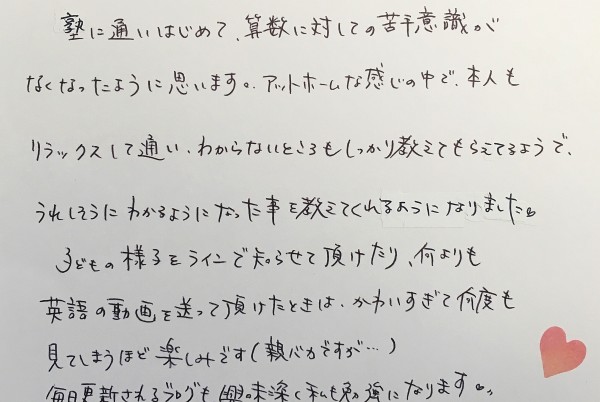 塾に通いはじめて、算数に対しての苦手意識が
なくなったように思います。アットホームな感じの中で、本人も
リラックスして通い、わからないところもしっかり教えてもらえてるようで、
うれしそうにわかるようになった事を教えてくれるようになりました。
子どもの様子をラインで知らせて頂けたり、何よりも
英語の動画を送って頂けたときは、かわいすぎて何度も
見てしまうほど楽しみです(親バカですが…)
毎日更新されるブログも興味深く私も勉強になります。